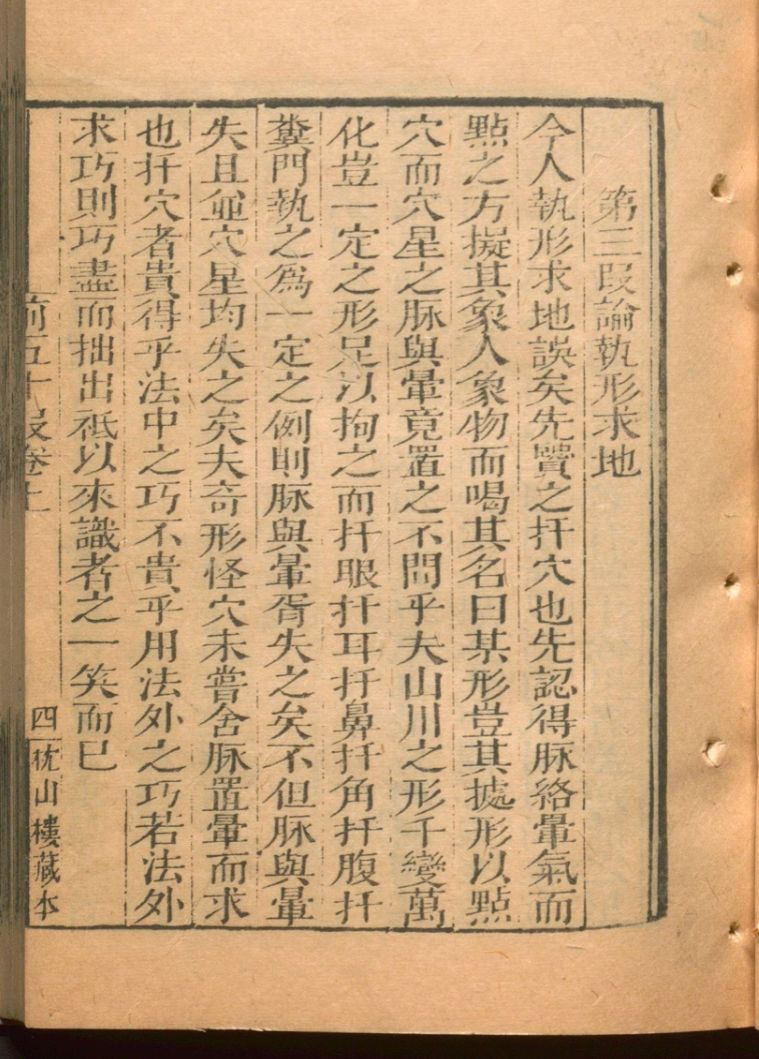 第三叚論執形求地
今人執形求地誤矣先賢之扦穴也先認得脉絡暈氣而
點之方擬其象人象物而喝其名曰某形豈其據形以點
穴而穴星之脉與暈竟置之不問乎夫山川之形千變萬
化豈一定之形足以拘之而扦眼扦耳扦鼻扦角扦腹扦
糞門執之爲一定之例則脉與暈胥失之矣不但脉與暈
失且並穴星均失之矣夫奇形怪穴未嘗舍脉置暈而求
也扦穴者貴得乎法中之巧不貴乎用法外之巧若法外
求巧則巧盡而拙出祗以來識者之一笑而已
前五十叚卷上
四
枕山樓藏本